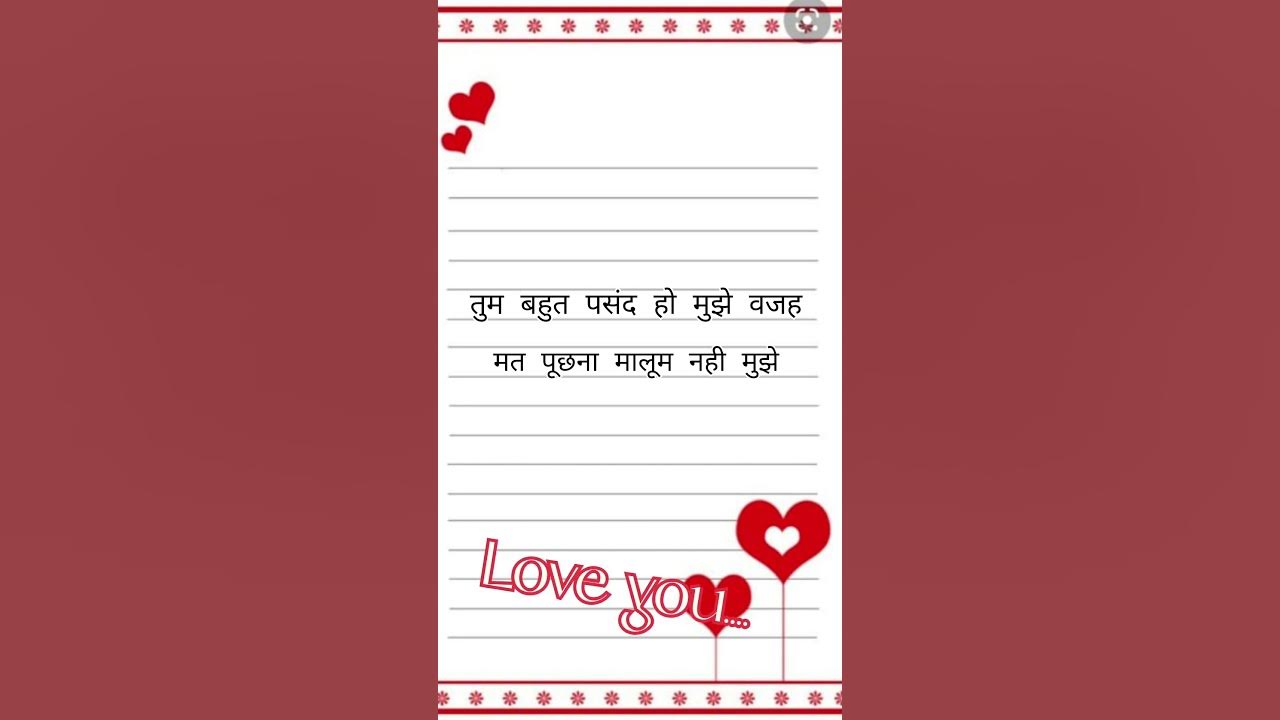 तुम बहुत पसंद हो मुझे वजह
मत पूछना मालूम नही मुझे
Love you....